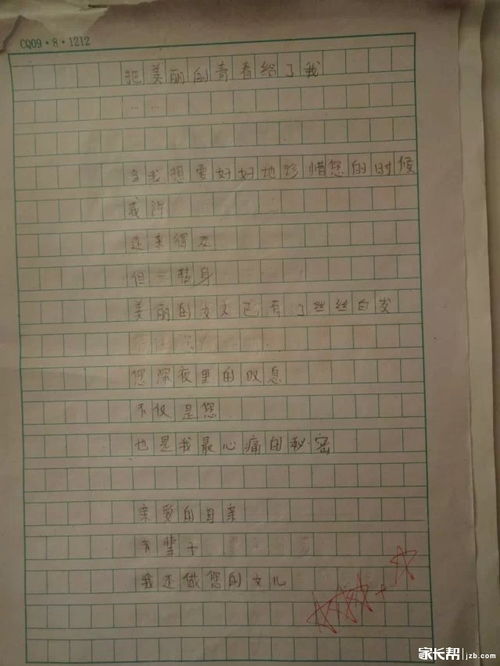 CQ09·8·1212
把美丽的青春给了我
……
当我想要好好地珍惜您的时候
或许
还来得及
但一转身
美丽的女人已有了丝丝白发
您深夜里的叹息
不仅是您
也是我最心痛的秘密
亲爱的母亲
有辈子
我还做您的女儿
家长帮 jzb.com